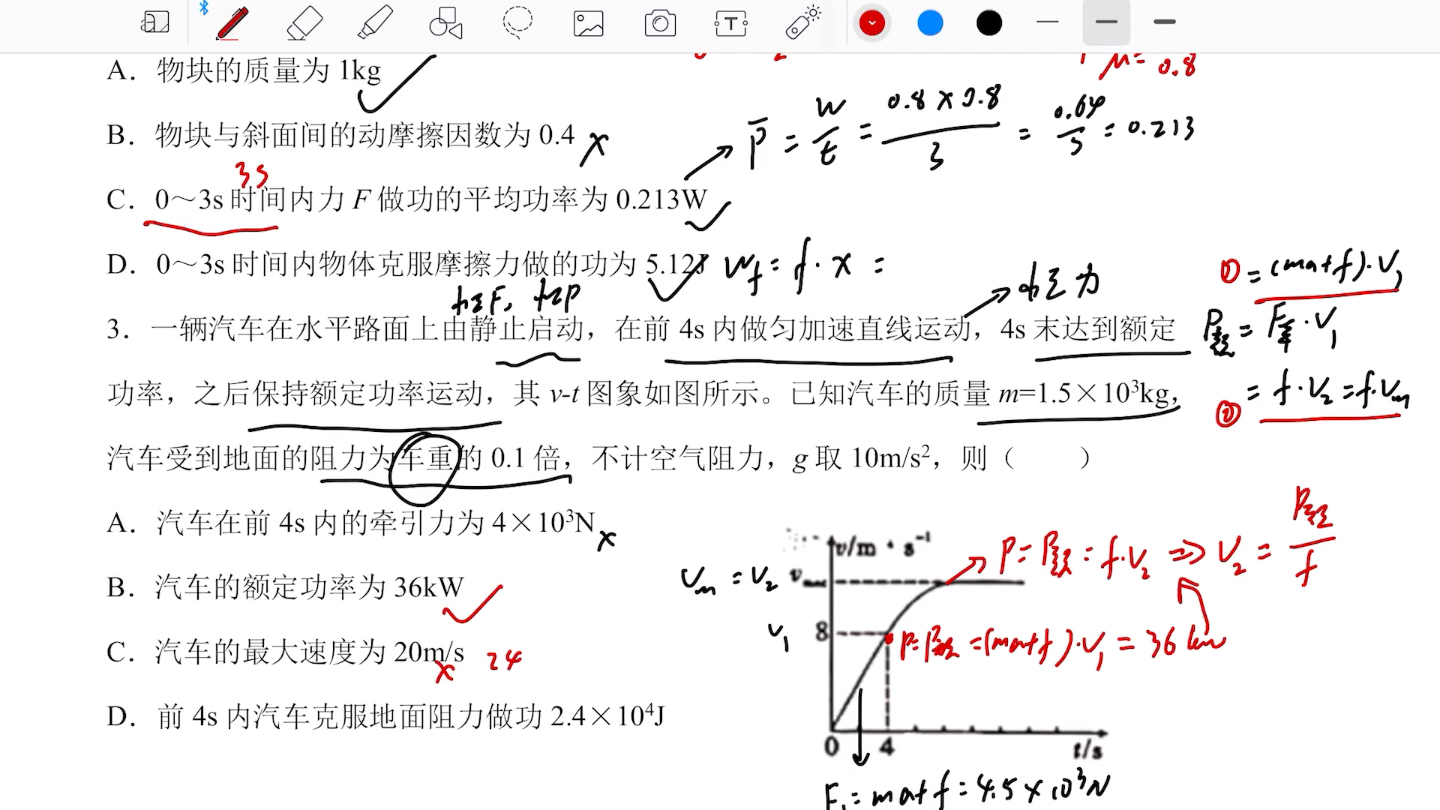 μ= 0.8
A．物块的质量为 1kg
B．物块与斜面间的动摩擦因数为 0.4 ×
P = W/t = 0.8×0.8/3 = 0.64/3 = 0.213
3s
C．0～3s 时间内力 F 做功的平均功率为 0.213W
D．0～3s 时间内物体克服摩擦力做的功为 5.12J
Wf = f·x =
恒F，恒P
恒力
① = (ma+f)·V1
3．一辆汽车在水平路面上由静止启动，在前 4s 内做匀加速直线运动，4s 末达到额定
P额 = F牵·V1
功率，之后保持额定功率运动，其 v-t 图象如图所示。已知汽车的质量 m=1.5×10³kg，
② = f·V2 = f·Vm
汽车受到地面的阻力为车重的 0.1 倍，不计空气阻力，g 取 10m/s²，则（　　）
A．汽车在前 4s 内的牵引力为 4×10³N ×
B．汽车的额定功率为 36kW
C．汽车的最大速度为 20m/s × 24
D．前 4s 内汽车克服地面阻力做功 2.4×10⁴J
v/m·s⁻¹
P=P额=f·V2 ⇒ V2 = P额/f
Vm = V2
V1 8
P=P额=(ma+f)·V1 = 36kw
0 4 t/s
F1=ma+f=4.5×10³N